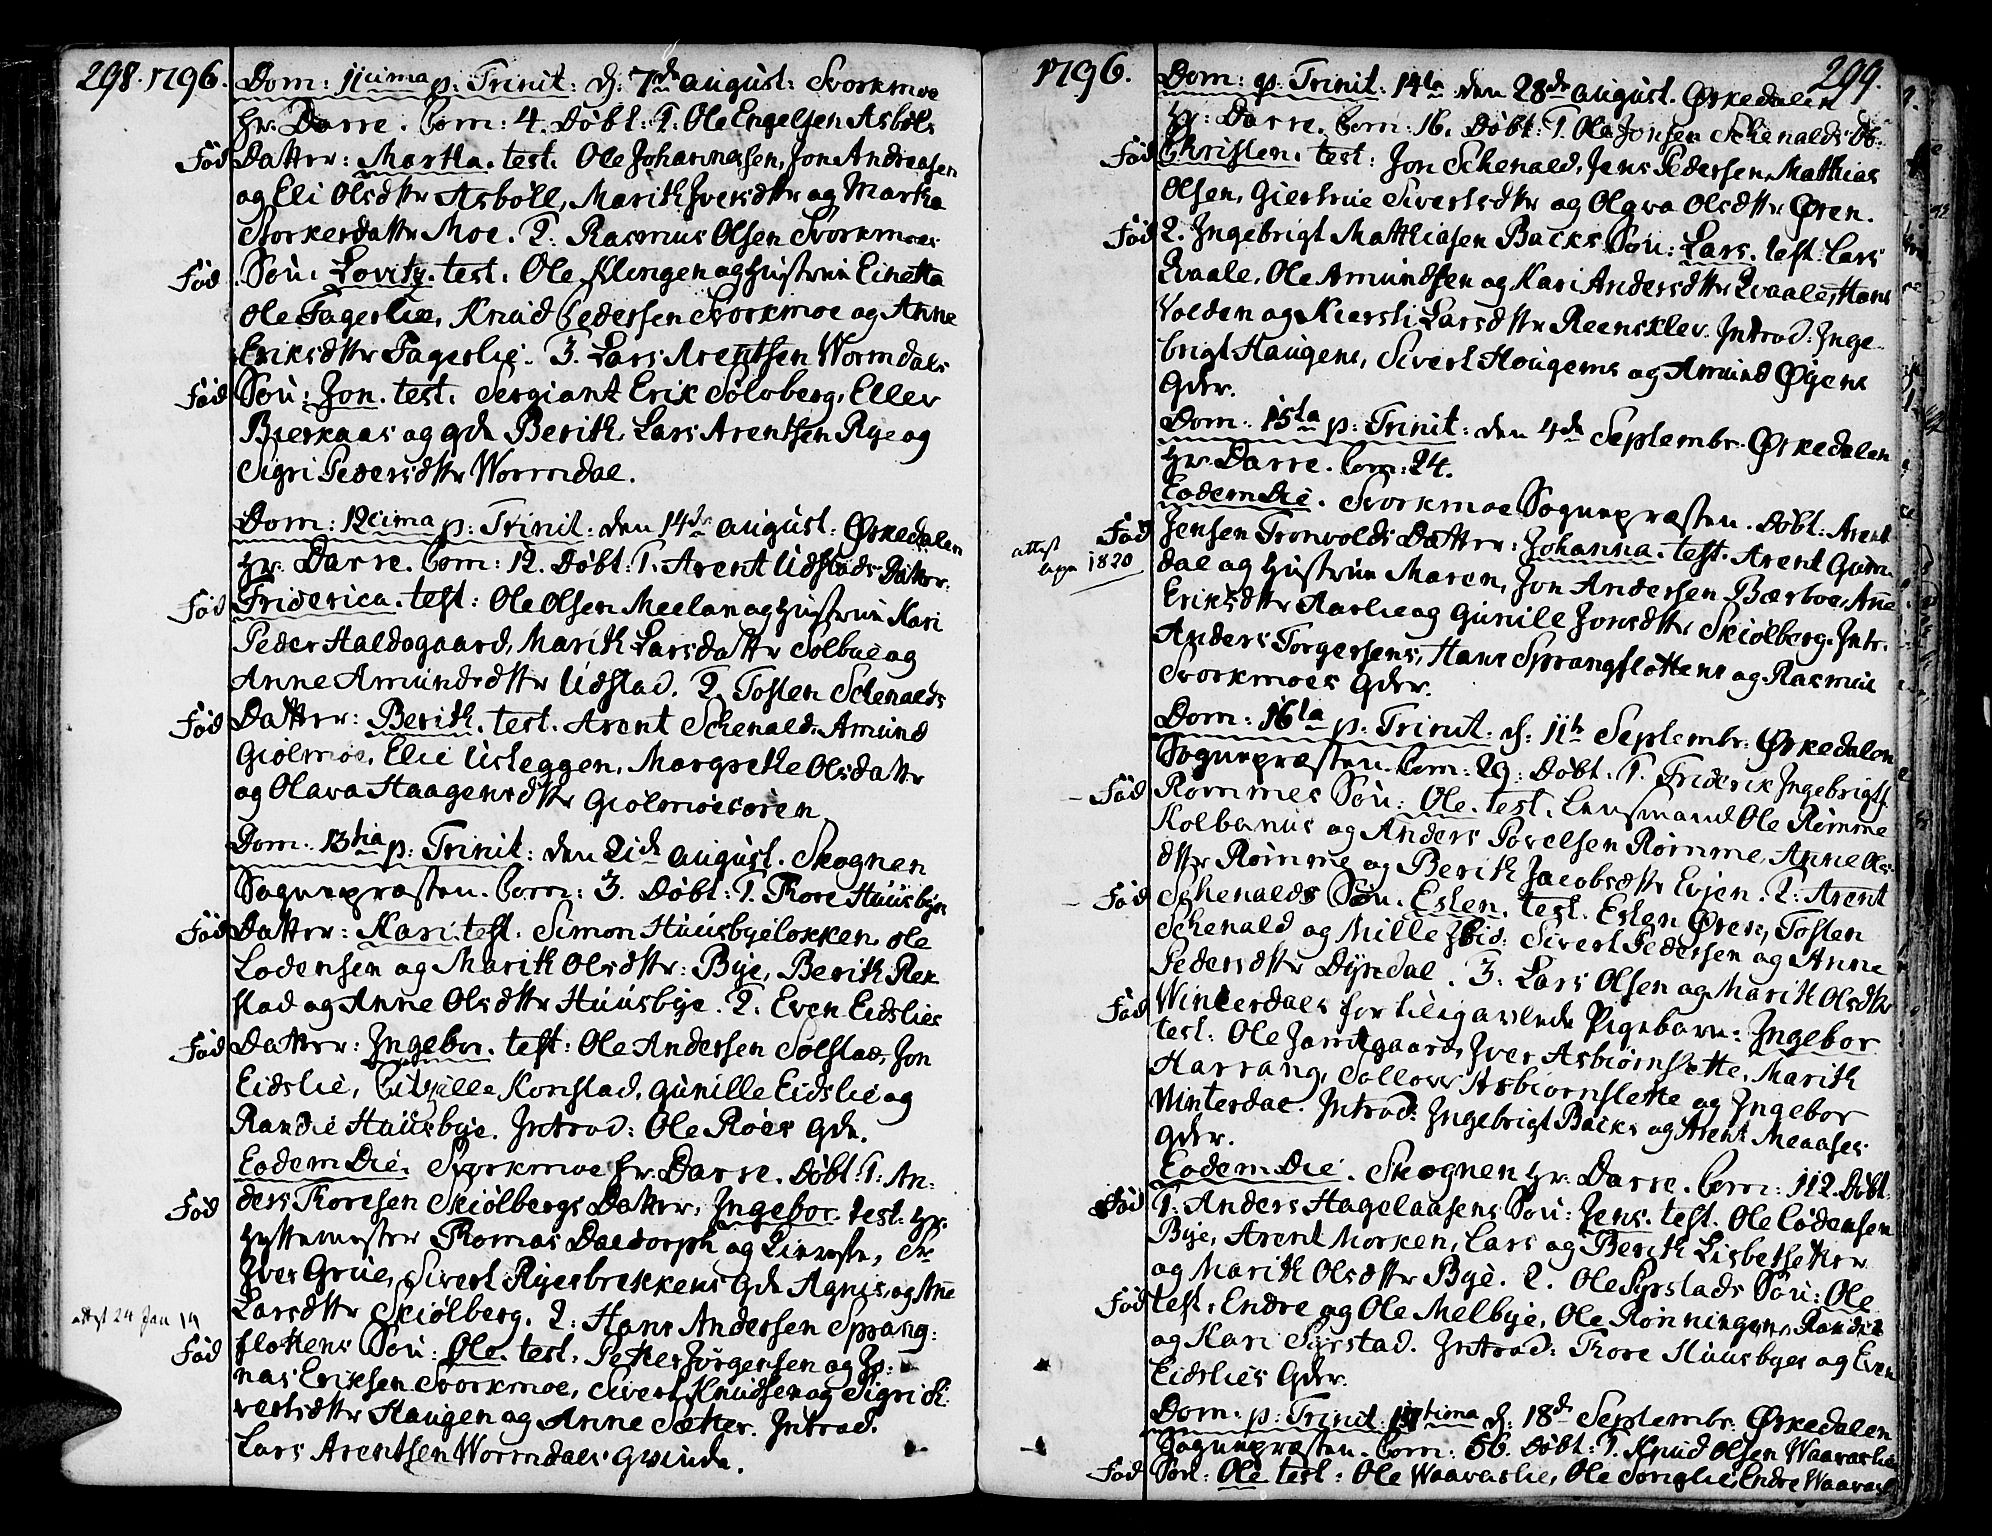 298. 1796.
Dom: 11cima p: Trinit: d: 7de august: Svorkmoe
Hr. Darre. Com: 4. Døbt: 1. Ole Engelsen Asbøls
Fød Datter: Martha. test. Ole Johannesen, Jon Andreasen
og Eli Olsdttr Asbøll, Marith Iversdttr og Martha
Storkersdattr Moe. 2: Rasmus Olsen Svorkmoes
Fød Søn: Lovitz. test. Ole Klingen og Hustrue Einetta
Ole Fagerlie, Knud Pedersen Svorkmoe og Anne
Eriksdttr Fagerlie. 3. Lars Arentsen Wormdals
Fød Søn: Jon. test. Sergiant Erik Solberg, Ellev
Bierkaas og gde Berith, Lars Arentsen Rye og
Sigri Pedersdttr Wormdal.
Dom: 12cima p: Trinit: den 14de august: Ørkedalen
Hr. Darre. Com: 12. Døbt: 1. Arent Udstads Datter:
Fød Friderica. test: Ole Olsen Meelan og Hustrue Kari
Peder Haldogaard, Marith Larsdattr Solbue og
Anne Amundsdttr Udstad. 2. Tosten Schenalds
Fød Datter: Berith. test. Arent Schenald, Amund
Giølmoe, Elie Usteggen, Margrethe Olsdattr
og Olava Haagensdttr Giølmoesøren
Dom. 13tia p: Trinit: den 21de august. Skognen
Sognepræsten. Com: 3. Døbt: 1. Thore Huusbyes
Fød Datter: Kari. test. Simon Huusbyeløkken, Ole
Lodensen og Marith Olsdttr: Bye, Berith Rek
stad og Anne Olsdttr Huusbye. 2. Even Eidslies
Fød Datter: Ingebor. test: Ole Andersen Solstad, Jon
Eidslie, Konstad, Gunille Eidslie og
Randie Huusbye. Introd: Ole Roes Gde.
Eodem Die. Svorkmoe Hr. Darre. Døbt: 1: An-
Fød ders Thoresen Skiølbergs Datter, Ingebor. test: Hr.
Hyttemester Thomas Daldorph og Sr
Iver Grue, Sivert Ryesbrekkens Gde Agnis, og Ane
Larsdttr Skiølberg. 2: Hans Andersen Sprang:
attest 24 Jan 19
Fød flottens Søn: Ole. test. Petter Jørgensen og Jo:
nas Eriksen Svorkmoe, Sivert Knudsen og Sigri Si
vertsdttr Haugen og Anne Sæther. Introd.
Lars Arentsen Wormdals Qvinde.
1796. 299.
Dom: p: Trinit: 14ta den 28de august. Ørkedalen
Hr: Darre. Com: 16. Døbt: 1. Ole Jonsen Schenalds Sø:
Fød Christen. test: Jon Schenald, Jens Pedersen, Matthias
Olsen, Giertrue Sivertsdttr og Olava Olsdttr Øren.
Fød 2. Ingebrigt Matthiasen Backs Søn: Lars. test: Lars
Evaale, Ole Amundsen og Kari Andersdttr Evaale, Hans
Volden og Kiersti Larsdttr Reensklev. Introd: Inge-
brigt Haugens, Sivert Hougens og Amund Øyens
Gder.
Dom. 15ta p: Trinit: den 4de Septembr. Ørkedalen
Hr: Darre. Com: 24.
Eodem Die. Svorkmoe Sognepræsten. Døbt: Arent
attest 1820
Fød Jensen Tronvolds Datter: Johanna. test. Arent Gum-
dal og Hustrue Maren, Jon Andersen Bærboe, Ane
Eriksdttr Aarlie og Gunile Jonsdttr Skiølberg. Intr.
Anders Torgersens, Hans Sprangflottens og Rasmus
Svorkmoes Gder.
Dom: 16ta p: Trinit: d: 11te Septembr: Ørkedalen
Sognepræsten. Com: 29: Døbt. 1. Friderik Ingebrigts.
Fød Rømmes Søn: Ole. test. Lensmand Ole Rømme
Kolbanus og Anders Povelsen Rømme, Anne Ols-
dttr Rømme og Berith Jacobsdttr Evjen. 2: Arent
Fød Schenalds Søn. Esten. test. Esten Øren, Tosten
Schenald og Mille ibid: Sivert Pedersen og Anne
Pedersdttr Dyrdal. 3. Lars Olsen og Marith Olsdttr
Fød Winterdals fortilig avlede Pigebarn: Ingebor
test: Ole Jamtgaard, Iver Asbiørnslette, Marith
Harrang, Asbiørnslette og Ingebor
Winterdal. Introd: Ingebrigt Backs og Arent Meaases
Gder.
Eodem Die. Skognen Hr. Darre. Com: 112. Døbt.
Fød 1. Anders Hagelaasens Søn: Jens. test. Ole Lodensen
Bye, Arent Morken, Lars og Berith Lisbethsetter
og Marith Olsdttr Bye. 2. Ole Syrstads Søn: Ole
Fød test: Endre og Ole Melbye, Ole Rønningen, Randie
og Kari Syrstad. Introd: Thore Huusbyes og Even
Eidslies Gder.
Dom. p: Trinit: 17tima d: 18de Septembr: Ørkedalen
Sognepræsten. Com: 56. Døbt: 1. Knud Olsen Waavaslies
Fød Søn: Ole test: Ole Waavaslie, Ole Songlie, Endre Waavas